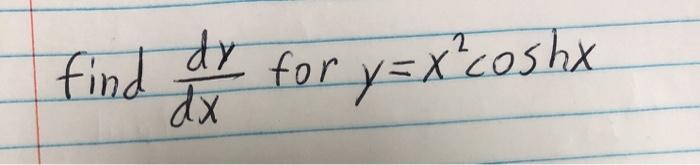 find dy/dx for y=x²coshx